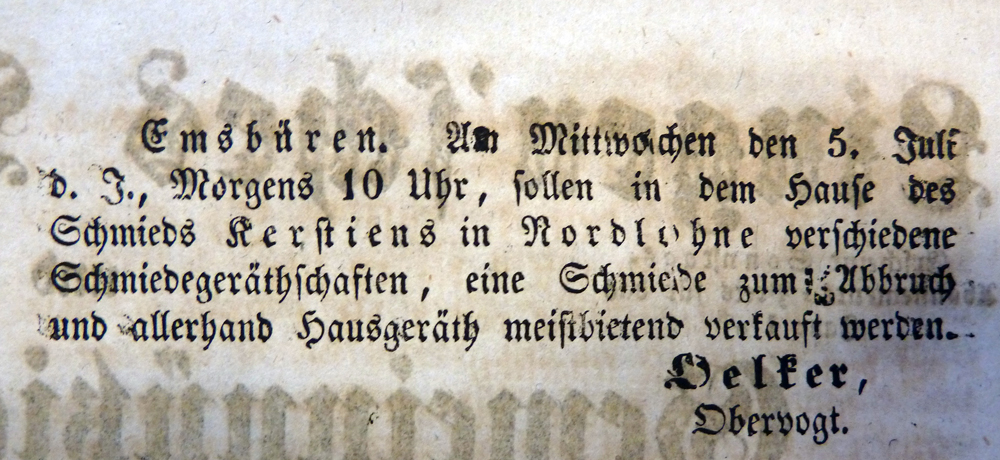 Emsbüren. Am Mittwochen den 5. Juli
d. J., Morgens 10 Uhr, sollen in dem Hause des
Schmieds Kerstiens in Nordlohne verschiedene
Schmiedegeräthschaften, eine Schmiede zum Abbruch
und allerhand Hausgeräth meistbietend verkauft werden.
Oelker,
Obervogt.